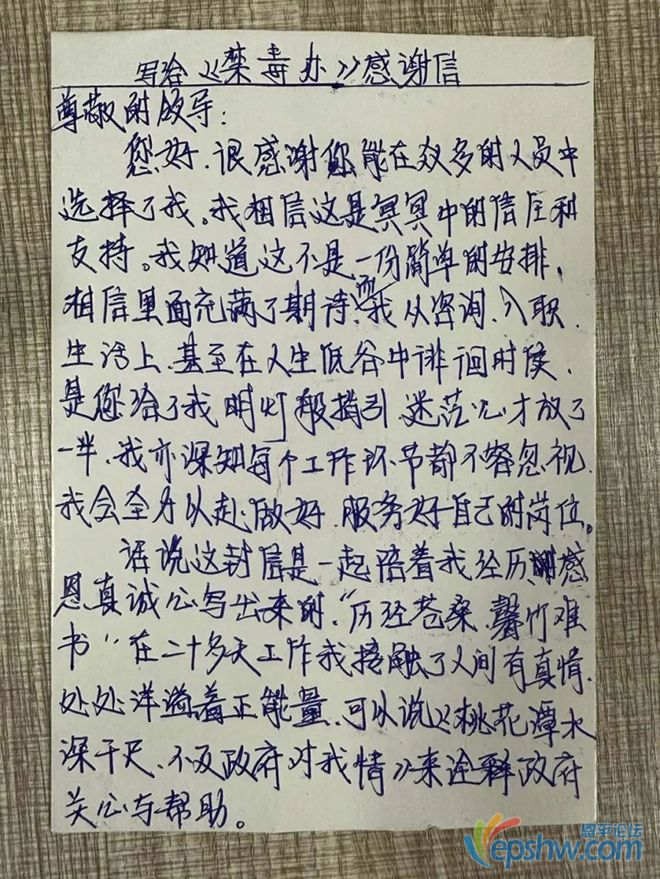 写给《禁毒办》感谢信
尊敬的领导：
您好、很感谢您能在众多的人员中
选择了我。我相信这是冥冥中的信任和
支持。我知道这不是一份简单的安排，
相信里面充满了期待、而我从咨询、入职、
生活上、甚至在人生低谷中徘徊时候、
是您给了我明灯般指引、迷茫心才放了
一半、我亦深知每个工作环节都不容忽视、
我会全力以赴做好、服务好自己的岗位。
话说这封信是一起陪着我经历的感
恩真诚心写出来的、“历经苍桑、馨竹难
书”在二十多天工作我接触了人间有真情、
处处洋溢着正能量、可以说《桃花潭水
深千尺、不及政府对我情》来诠释政府
关心与帮助。
恩平论坛
epshw.com